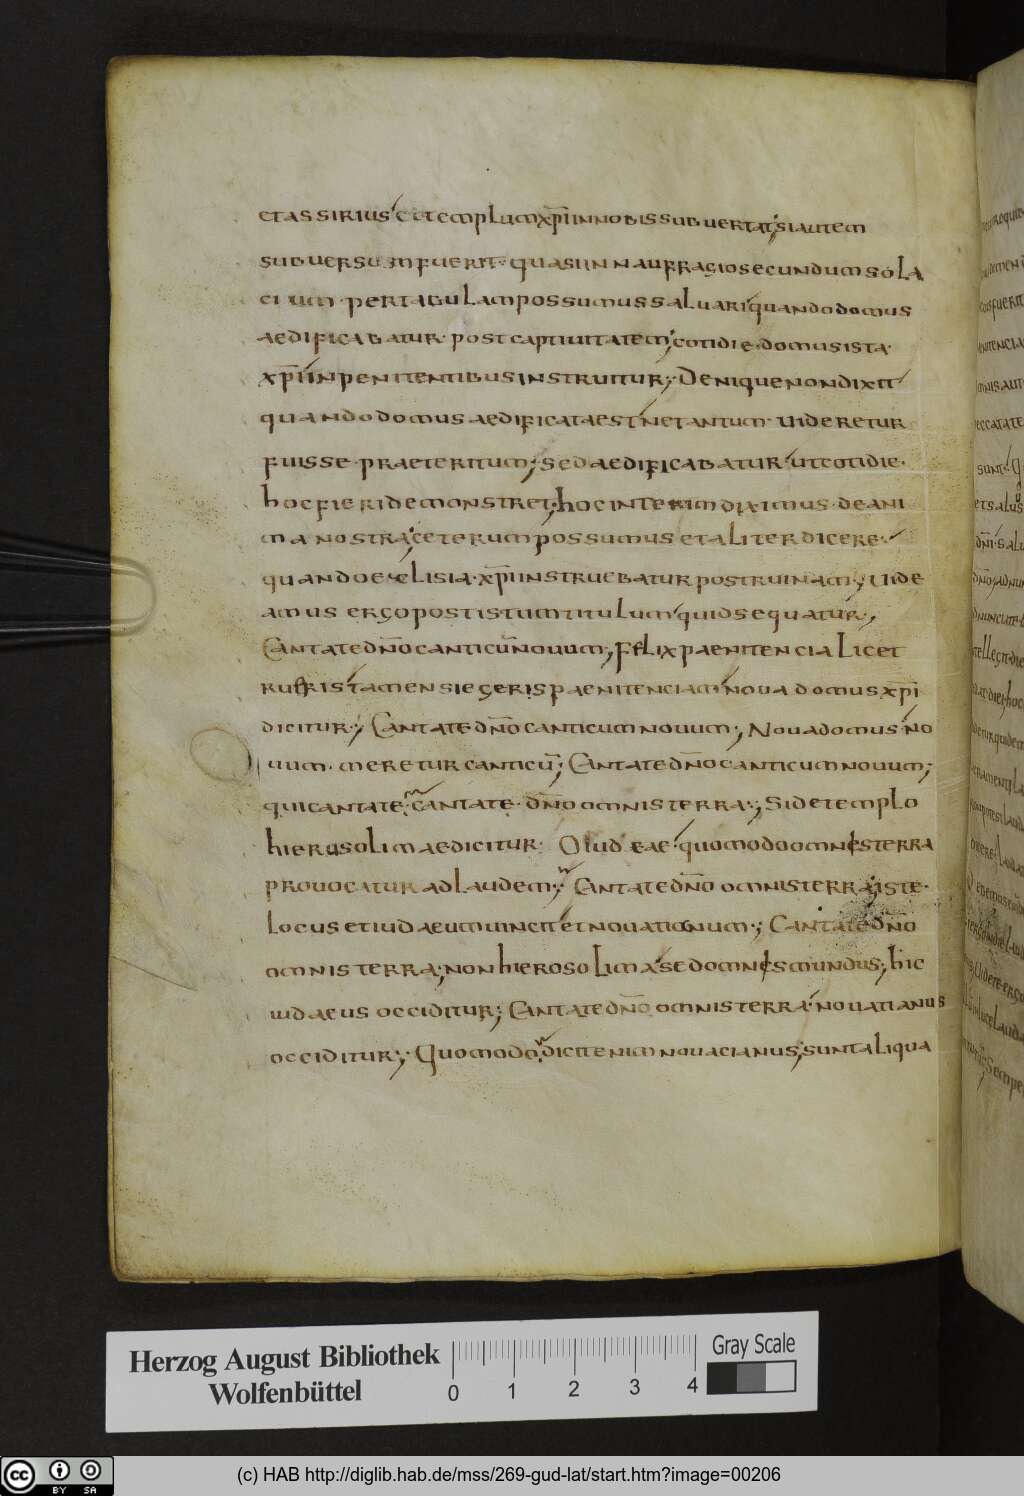 et assirius et templum xp̄i in nobis subuertat; si autem
subuersum fuerit· quasi in naufragio secundum sola
cium· per tabulam possumus saluari quando domus
aedificabatur· post captiuitatem; cotidie· domus ista·
xp̄i in penitentibus instruitur; Denique non dixit
quando domus aedificata est ne tantum· uideretur
fuisse· praeteritum; sed aedificabatur ut cotidie·
hoc fieri demonstret; hoc interim diximus· de ani
ma nostra; ceterum possumus et aliter dicere·
quando eclisia· xp̄i instruebatur post ruinam; Uide
amus ergo post istum titulum quid sequatur;
Cantate dn̄o canticū nouum; Felix paenitencia licet
rufris tamen si egeris paenitenciam noua domus xp̄i
dicitur; Cantate· dn̄o canticum nouum; Noua domus· no
uum· meretur canticū; Cantate dn̄o canticum nouum;
qui cantate; cantate· dn̄o omnis terra; Si de templo
hierusolimae dicitur· quomodo omnis terra
prouocatur ad laudem; Cantate dn̄o omnis terra; iste·
locus et iudaeum uincit et nouationum; Cantate dn̄o
omnis terra; non hierosolima sed omnis mundus; hic
iudaeus occiditur; Cantate dn̄o omnis terra· nouatianus
occiditur; Quomodo; dicit enim nouacianus; sunt aliqua
Herzog August Bibliothek
Wolfenbüttel
0 1 2 3 4
Gray Scale
cc BY SA
(c) HAB http://diglib.hab.de/mss/269-gud-lat/start.htm?image=00206